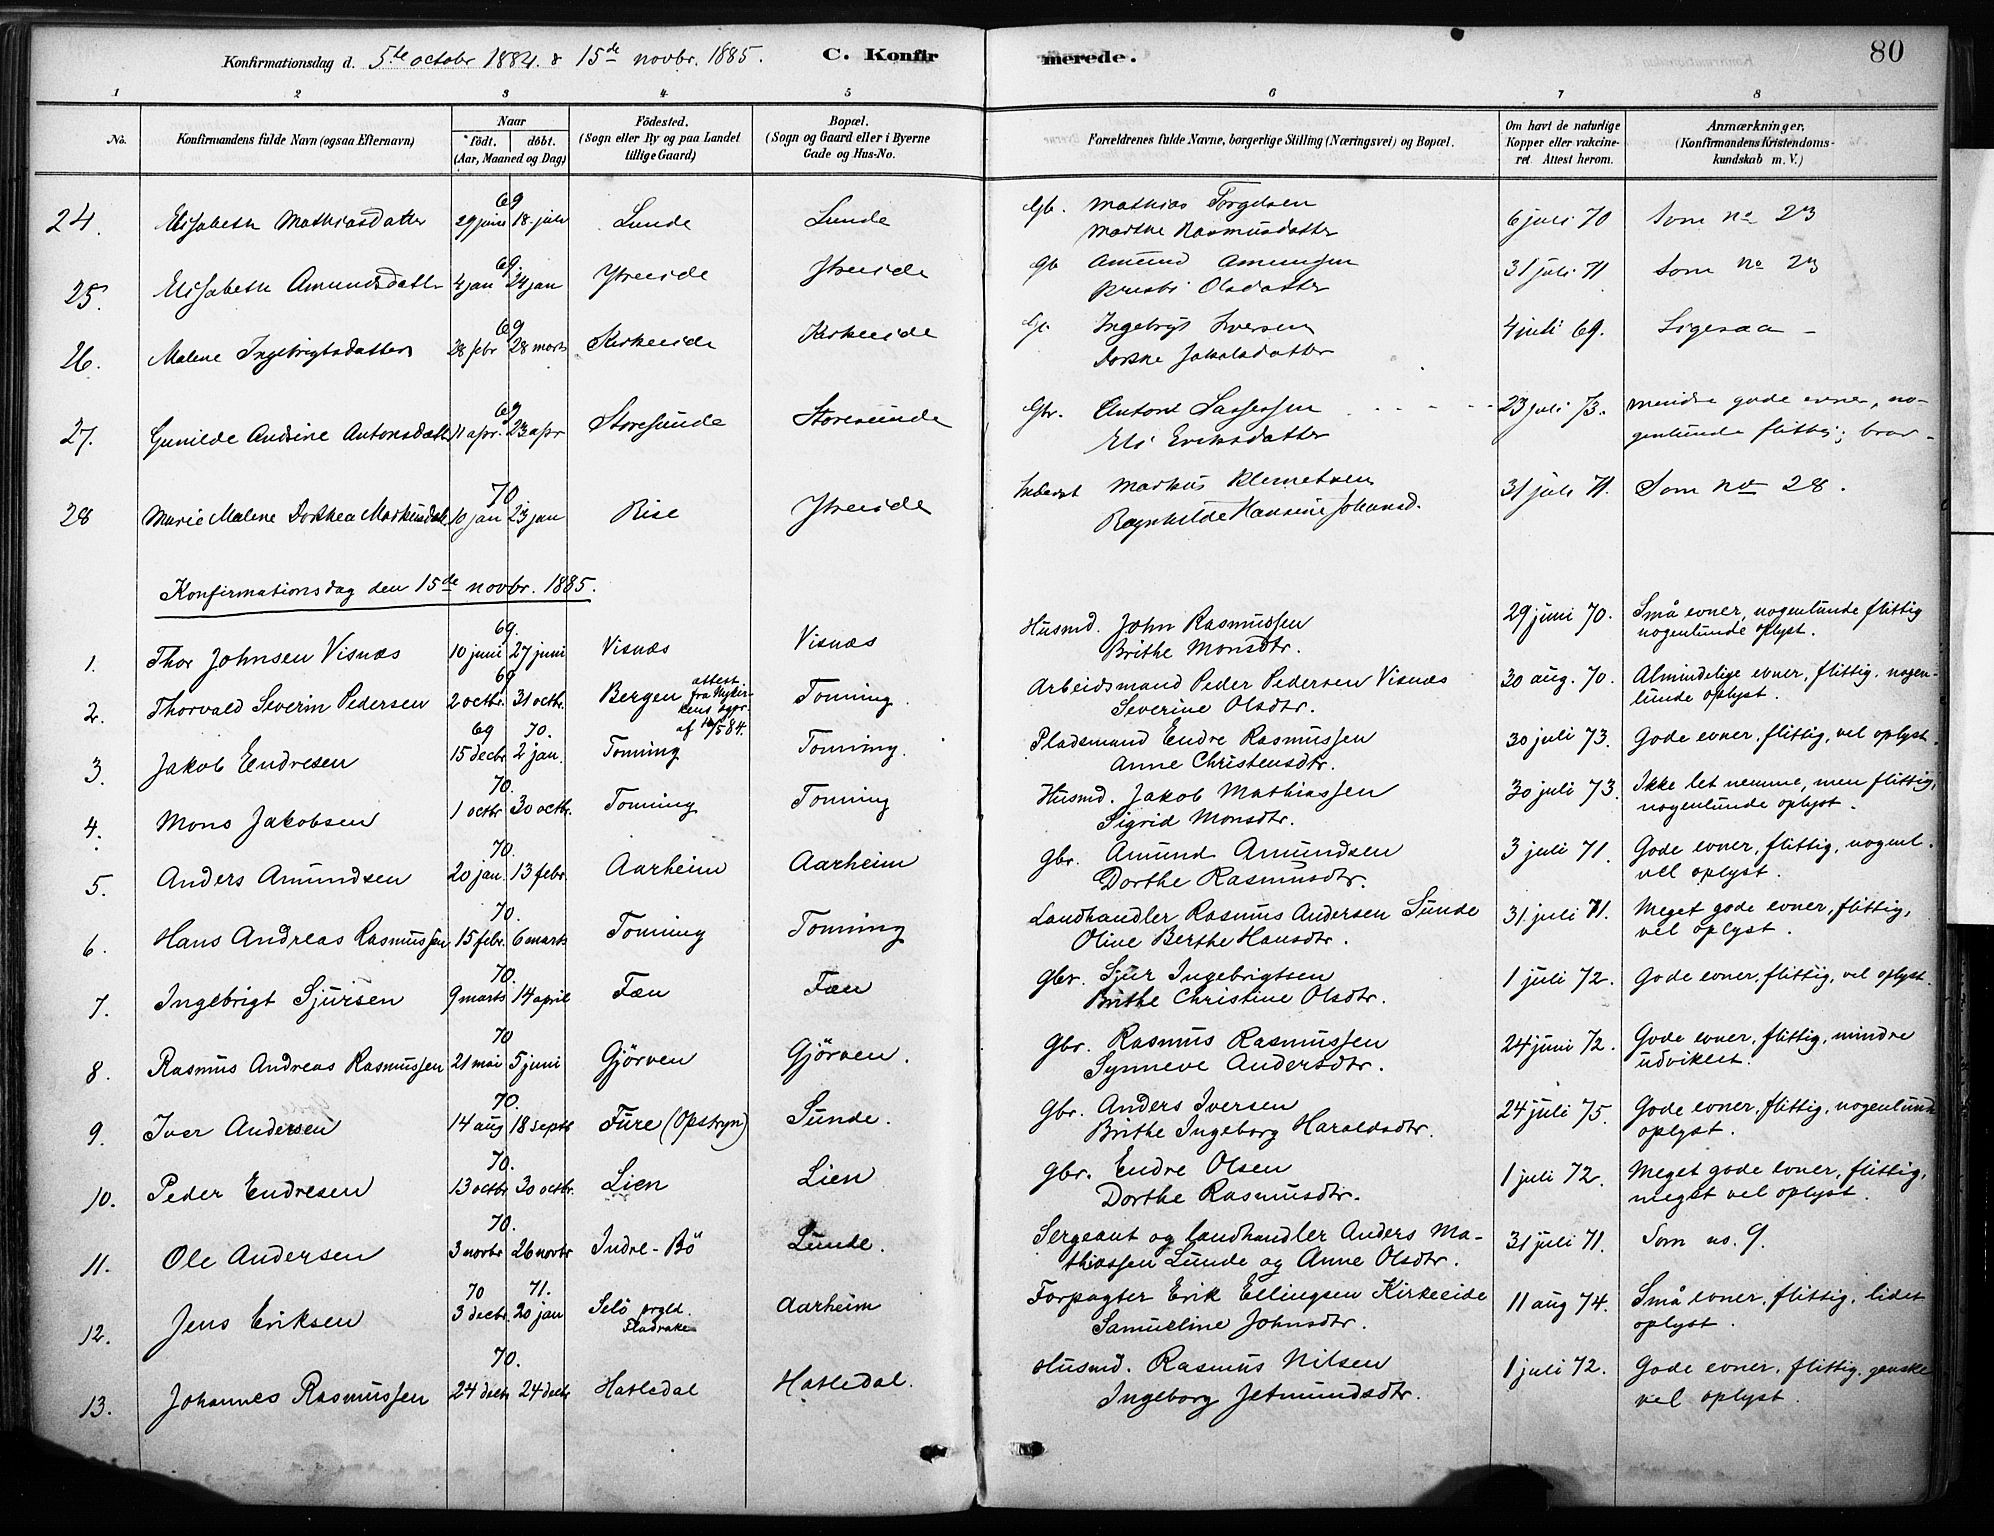 Konfirmationsdag d. 5te octobr 1884. & 15de novbr. 1885. C. Konfirmerede. 80
1 2 3 4 5 6 7 8
No. Konfirmandens fulde Navn (ogsaa Efternavn) Naar født. døbt. (Aar, Maaned og Dag) Födested. (Sogn eller By og paa Landet tillige Gaard) Bopæl. (Sogn og Gaard eller i Byerne Gade og Hus-No. Forældrenes fulde Navne, borgerlige Stilling (Næringsvei) og Bopæl. Om havt de naturlige Kopper eller vakcineret. Attest herom. Anmærkninger. (Konfirmandens Kristendomskundskab m. V.)
69
24. Elisabeth Mathiasdatter 29 juni 18. juli Lunde Lunde Gb. Mathias Torgelsen 6 juli 70 Som no 23
Marthe Rasmusdatter
69
25. Elisabeth Amundsdatter 4 jan 24 jan Ytreeide Ytreeide Gb Amund 31 juli 71 Som no 23
Olsdatter
69
26. Malene Ingebrigtsdatter 28 febr 28 marts Kirkeeide Kirkeeide Ingebrigt Iversen 4 juli 69. Ligesaa -
Dorthe Jakobsdatter
69
27. Gunilde Andrine Antonsdatter 11 apr. 23 apr Storesunde Storesunde Gbr. Anton Lassesen 23 juli 73. mindre gode evner, no-
Eli Eriksdatter genlunde flittig; brav -
70
28 Marie Malene Dorthea Markusdatr 10 jan 23 jan Rise Ytreeide Markus Klemetsen 31 juli 71. Som no 28.
Ragnhilde Hansine Johansd.
Konfirmationsdag den 15de novbr. 1885.
69.
1. Thor Johnsen Visnæs 10 juni 27 juni Visnæs Visnæs Husmd. John Rasmussen 29 juni 70. Små evner, nogenlunde flittig
Brithe Monsdtr. nogenlunde oplyst.
69
2. Thorvald Severin Pedersen 2 octbr. 31 octbr. Bergen attest fra Nykirkens sogn af 16/5 84. Tonning. Arbeidsmand Peder Pedersen Visnæs 30 aug. 70. Almindelige evner, flittig, nogen-
Severine Olsdtr. lunde oplyst.
69 70.
3. Jakob Endresen 15 decbr 2 jan. Tonning Tonning. Pladsmand Endre Rasmussen 30 juli 73. Gode evner, flittig, vel oplyst.
Anne Christensdtr.
70.
4. Mons Jakobsen 1 octbr 30 octbr. Tonning Tonning Husmd. Jakob Mathiassen 30 juli 73. Ikke let nemme, men flittig,
Sigrid Monsdtr. nogenlunde oplyst.
70.
5. Anders Amundsen 20 jan. 13 febr. Aarheim Aarheim Gbr. Amund Amundsen 3 juli 71. Gode evner, flittig, nogenl.
Dorthe Rasmusdtr. vel oplyst.
70.
6. Hans Andreas Rasmussen 15 febr. 6 marts Tonning Tonning Landhandler Rasmus Andersen Sunde 31 juli 71. Meget gode evner, flittig,
Oline Berthe Hansdtr. vel oplyst.
70.
7. Ingebrigt Sjursen 9 marts 14 april Fæn Fæn Gbr. Sjur Ingebrigtsen 1 juli 72. Gode evner, flittig, vel oplyst.
Brithe Christine Olsdtr.
70
8. Rasmus Andreas Rasmussen 21 mai 5 juni Gjörven Gjörven. Gbr. Rasmus Rasmussen 24 juni 72. Gode evner, flittig, mindre
Synneve Andersdtr. udviklet.
70.
9. Iver Andersen 14 aug 18 septb Fure (Opstryn) Sunde. Gbr. Anders Iversen 24 juli 75. Gode evner, flittig, nogenlunde
Brithe Ingeborg Haraldsdtr. oplyst.
70.
10. Peder Endresen 13 octbr 30 octbr. Lien Lien Gbr. Endre Olsen 1 juli 72. Meget gode evner, flittig,
Dorthe Rasmusdtr. meget vel oplyst.
70.
11. Ole Andersen 3 novbr 26 novbr Indre-Bö Lunde. Sergeant og landhandler Anders Ma- 31 juli 71. Som no. 9.
thiassen Lunde og Anne Olsdtr.
70 71.
12. Jens Eriksen 3 decbr. 20 jan Selö prgld. Aarheim Forpagter Erik Ellingsen Kirkeeide 11 aug 74. Små evner, flittig, lidet
Samueline Johnsdtr. oplyst.
70.
13. Johannes Rasmussen 24 decbr 24 decbr Hatledal Hatledal. Husmd. Rasmus Nilsen 1 juli 72. Gode evner, flittig, ganske
Ingeborg Jetmundsdtr. vel oplyst.